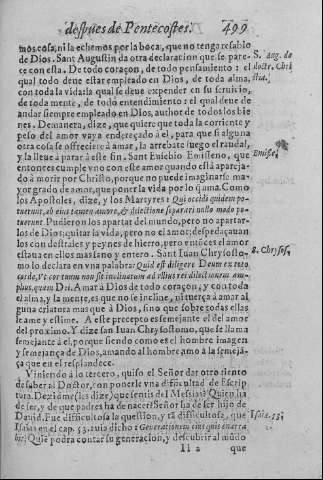 despues de Pentecostes. 499
mos cosa, ni la echemos por la boca, que no tenga resabio
de Dios. Sant Augustin da otra declaracion que se pare-
ce con esta. De todo coraçon, de todo pensamiento: el
qual todo deue estar empleado en Dios, de toda alma,
con toda la vida: la qual se deue expender en su seruicio,
de toda mente, de todo entendimiento: el qual deue de
andar siempre empleado en Dios, author de todos los bie
nes. Demanera, dize, que quiere que toda la corriente y
peso del amor vaya endereçado à el, para que si alguna
otra cosa se ofreciere à amar, la arrebate luego el raudal,
y la lleue à parar à este fin. Sant Eusebio Emisseno, que
entonces cumple vno con este amor quando està apareja-
do à morir por Christo, porque no puede imaginarse ma-
yor grado de amor, que poner la vida por lo q̃ ama. Como
los Apostoles, dize, y los Martyres: Qui occidi quidem po-
tuerunt, ab eius tamen amore, & dilectione separari nullo modo po-
tuerunt. Pudieron los apartar del mundo, pero no apartar-
los de Dios: quitar la vida, pero no el amor; despedaçauan
los con destrales y peynes de hierro, pero entõces el amor
estaua en ellos mas sano y entero. Sant Iuan Chrysosto-
mo lo declara en vna palabra: Quid est diligere Deum ex toto
corde, vt cor tuum non sit inclinatum ad vllius rei dilectionem am-
plius, quam Dei. Amar à Dios de todo coraçon, y con toda
el alma, y la mente, es que no se incline, ni tuerça à amar al
guna criatora mas que à Dios, sino que sobre todas ellas
le ame y estime. A este precepto es semejante el del amor
del proximo. Y dize san Iuan Chrysostomo, que se llama
semejante à el, porque siendo como es el hombre imagen
y semejança de Dios, amando al hombre amo à la semeja-
ça que en el resplandece.
Viniendo à lo tercero, quiso el Señor dar otro tiento
de saber al Doctor, con ponerle vna dificultad de Escrip
tura. Dezidme (les dize) que sentis del Messias? Quien ha
de ser, y de que padres ha de nacer? Señor ha de ser hijo de
Dauid. Fue dificultosa la question, y tã dificultosa, que
Isaias en el cap. 53. auia dicho: Generationem eius quis enarra
bit: Quie podra contar su generacion, y descubrir al mũdo
Ii 2 que
S. Aug. de
doctr. Chri
stia.
Emisse.
S. Chrysos.
Isaia. 53.